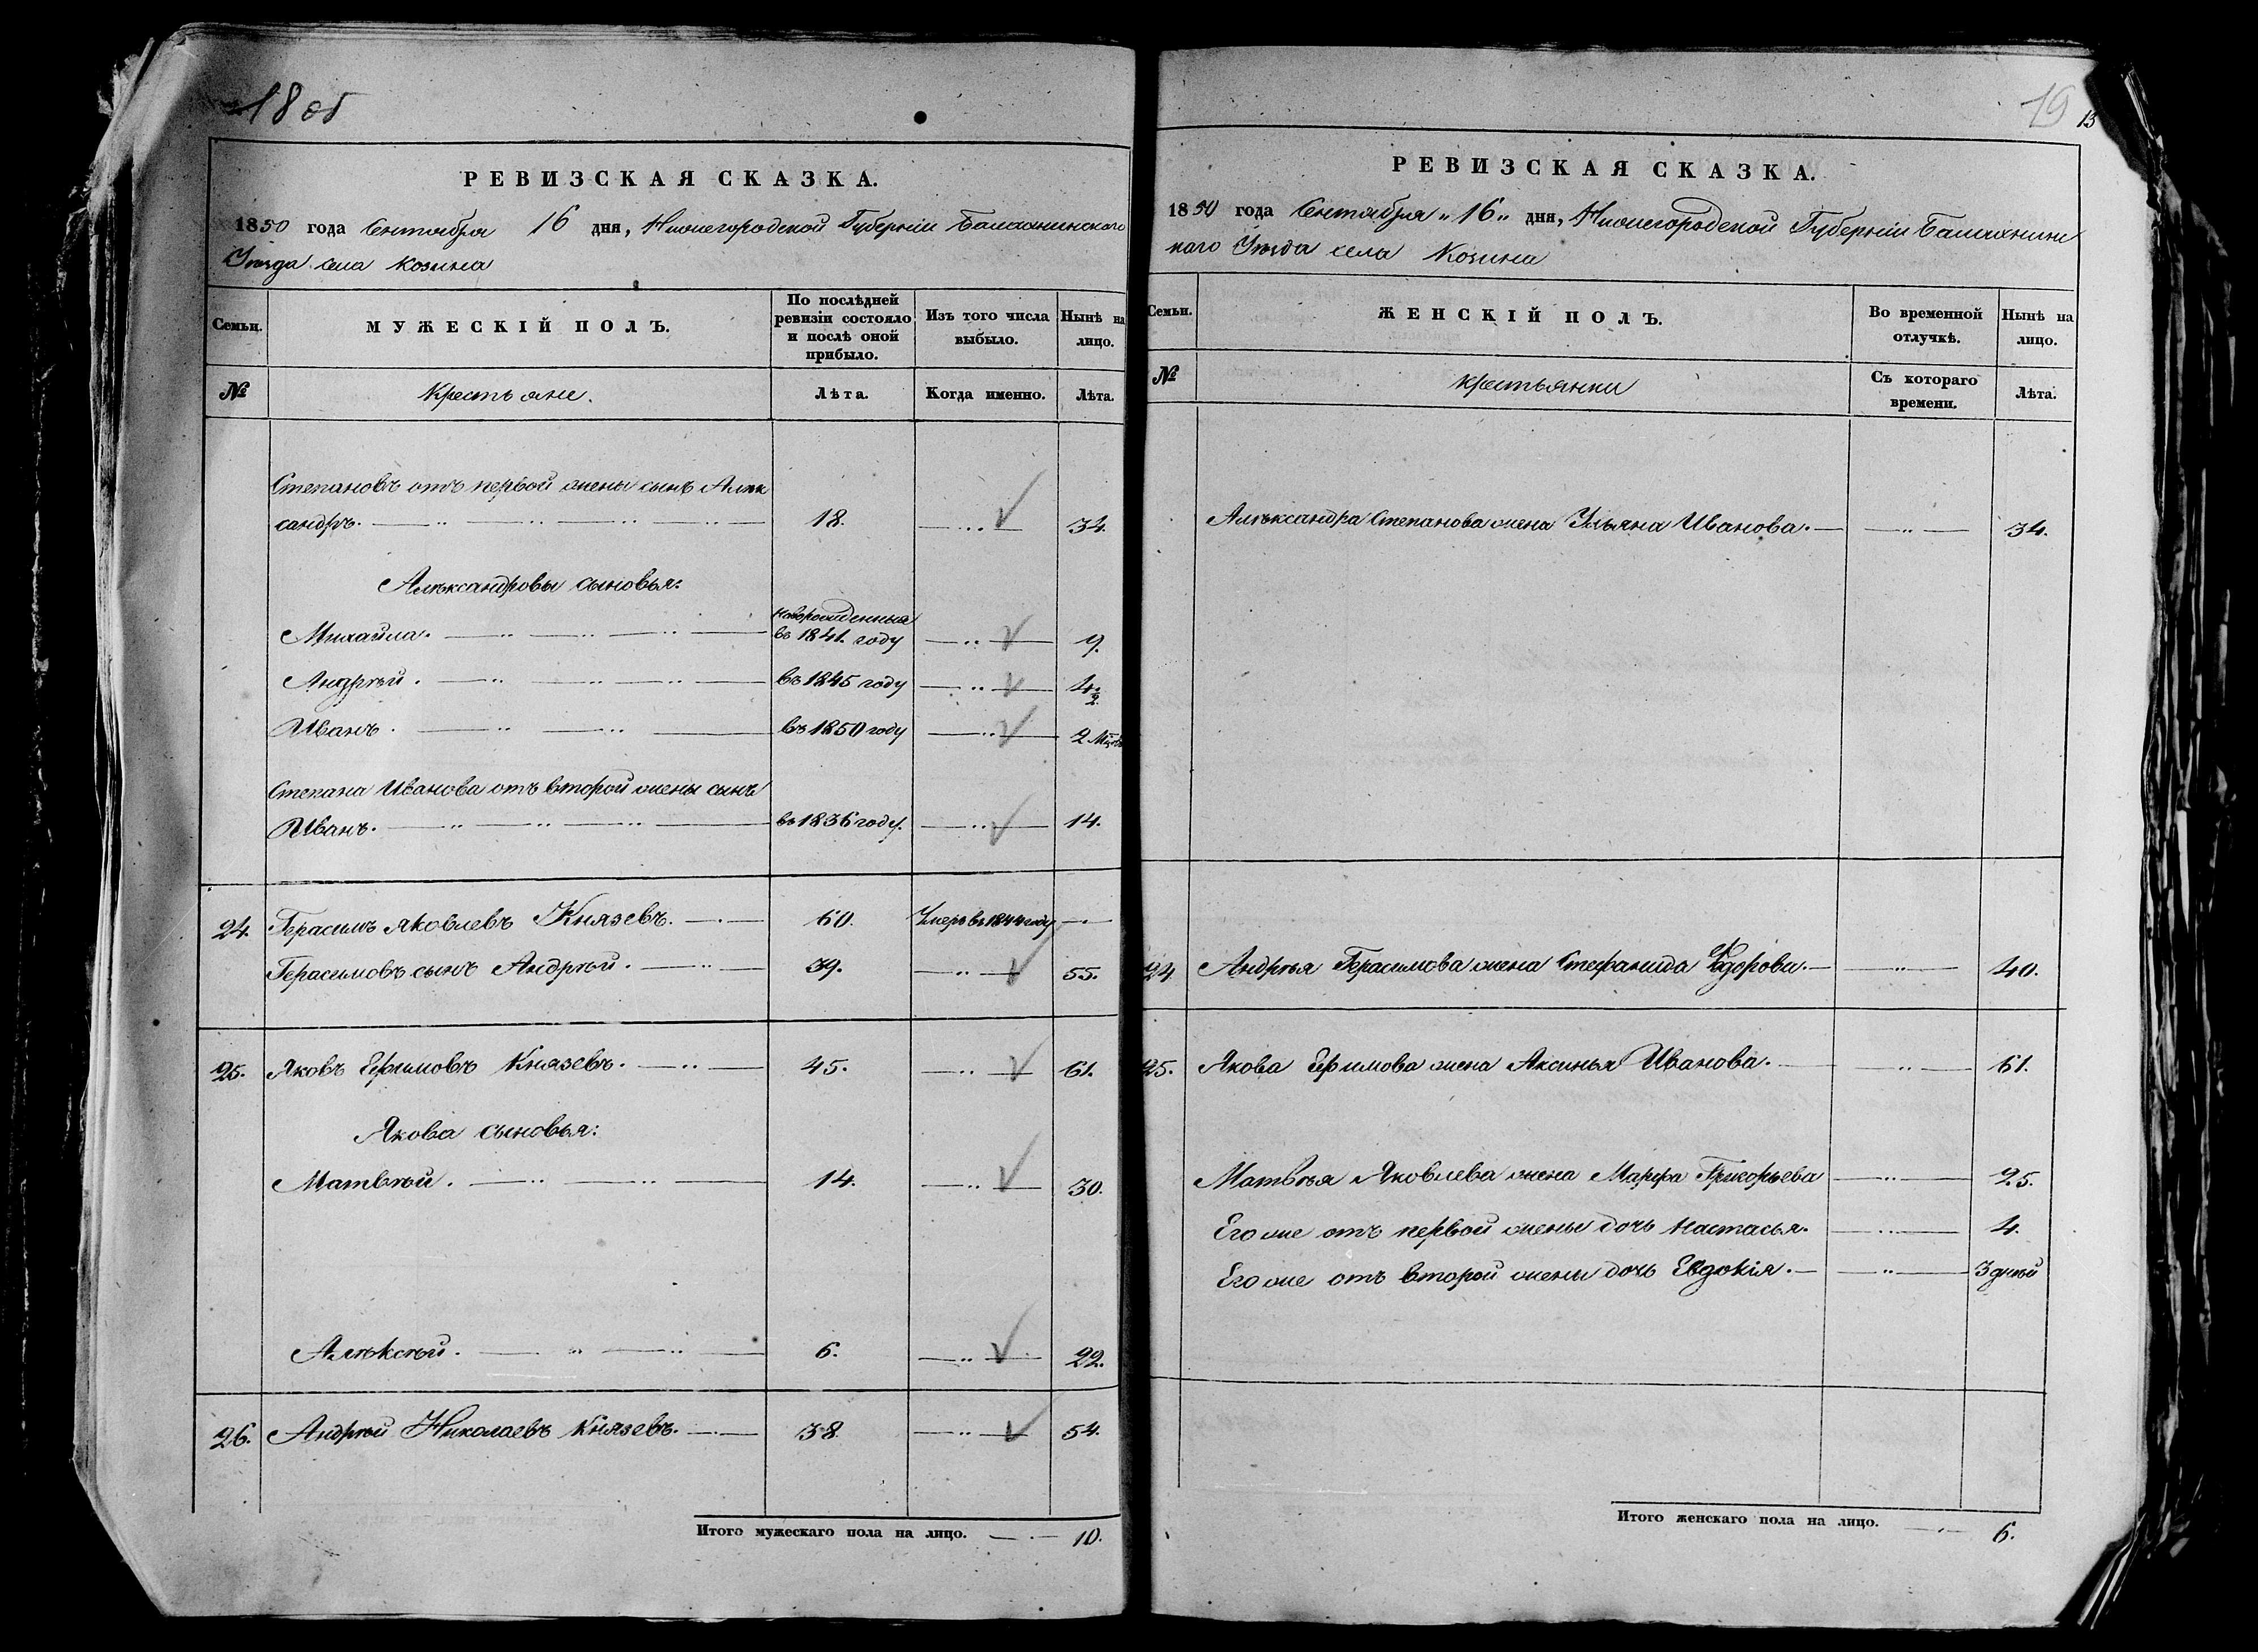 18 об
РЕВИЗСКАЯ СКАЗКА.
1850 года Сентября 16 дня, Нижегородской Губерніи Балахнинскаго
Уѣзда села Козина
Семьи.
МУЖЕСКІЙ ПОЛЪ.
По послѣдней ревизіи состояло и послѣ оной прибыло.
Изъ того числа выбыло.
Нынѣ на лицо.
№
Крестьяне.
Лѣта.
Когда именно.
Лѣта.
Степановъ отъ первой жены сынъ Алек
сандръ. 18. 34.
Алѣксандровы сыновья:
новорожденныя
Михайла. въ 1841. году 9.
Андрѣй. въ 1845 году 4½
Иванъ. въ 1850 году 2 Мѣсяц
Степана Иванова отъ второй жены сынъ
Иванъ. въ 1836 году. 14.
24. Герасимъ Яковлевъ Князевъ. 60. Умеръ въ 1844 году
Герасимовъ сынъ Андрѣй. 39. 55.
25. Яковъ Ефимовъ Князевъ. 45. 61.
Якова сыновья:
Матвѣй. 14. 30.
Алѣксѣй. 6. 22.
26. Андрѣй Николаевъ Князевъ. 38. 54.
Итого мужескаго пола на лицо. 10.
19
13
РЕВИЗСКАЯ СКАЗКА.
1850 года Сентября „16„ дня, Нижегородской Губерніи Балахнинс
каго Уѣзда села Козина
Семьи.
ЖЕНСКІЙ ПОЛЪ.
Во временной отлучкѣ.
Нынѣ на лицо.
№
крестьянки
Съ котораго времени.
Лѣта.
Алѣксандра Степанова жена Ульяна Иванова. 34.
24 Андрѣя Герасимова жена Стефанида Ѳедорова. 40.
25. Якова Ефимова жена Аксинья Иванова. 61.
Матвѣя Яковлева жена Марфа Григорьева 25.
Его же отъ первой жены дочь Настасья. 4.
Его же отъ второй жены дочь Евдокія. 3 дней
Итого женскаго пола на лицо. 6.